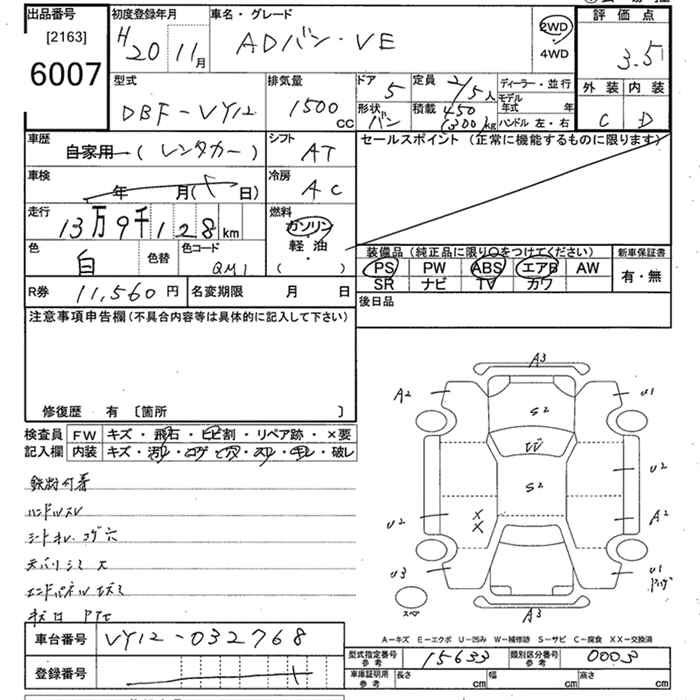 出品番号
[2163]
6007
初度登録年月
H 20 11月
車名・グレード
ADバン・VE
2WD
・
4WD
評価点
3.5
外装 内装
C D
型式
DBF-VY12
排気量
1500
CC
ドア
5
形状
バン
定員
2/5人
積載
450
(300)kg
ディーラー・並行
モデル年式 年
ハンドル 左・右
車歴
自家用 (レンタカー)
シフト
AT
車検
年 月( 日)
冷房
AC
走行
13万9千128km
燃料
ガソリン
・
軽・油
( )
色
白
色替
色コード
QM1
R券 11,560円
名変期限 月 日
セールスポイント (正常に機能するものに限ります)
装備品 (純正品に限り〇をつけてください)
新車保証書
PS PW ABS エアB AW
有・無
SR ナビ TV カワ
後日品
注意事項申告欄 (不具合内容等は具体的に記入して下さい)
修復歴 有 〔箇所 〕
検査員
記入欄
FW キズ・飛石・ヒビ割・リペア跡・×要
内装 キズ・汚レ・コゲ・穴・スレ・キレ・破レ
ハンドルスレ
A3
A2
U1
S2
W
U2
S2
U2
X
X
A2
U3
U1
スペア
A3
A-キズ E-エクボ U-凹み W-補修跡 S-サビ C-腐食 XX-交換済
車台番号 VY12-032768
登録番号
型式指定番号
参考
15633
類別区分番号
参考
0003
車庫証明用
参考
長さ cm 幅 cm 高さ cm